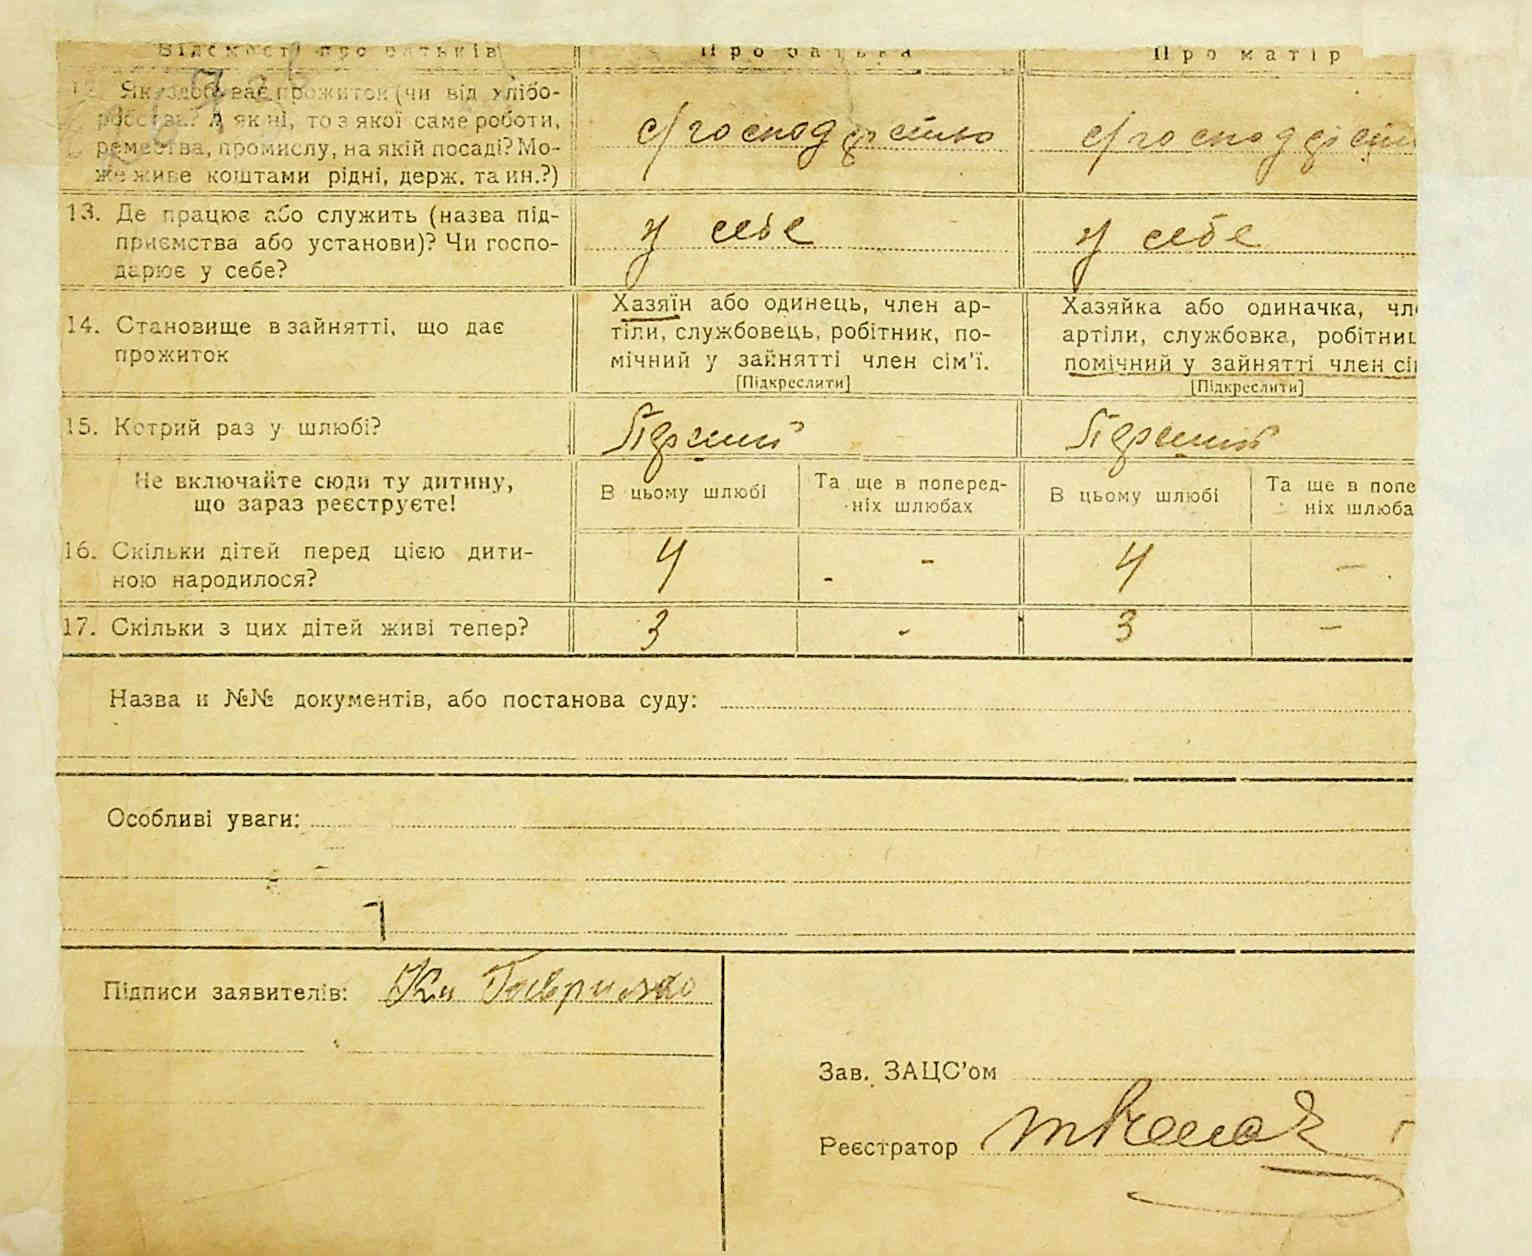 Відомості про батьків Про батька Про матір
12. Як здобуває прожиток (чи від хлібо-
робства? А як ні, то з якої саме роботи,
ремества, промислу, на якій посаді? Мо-
же живе коштами рідні, держ. та ин.?)
с/господарство с/господарст
13. Де працює або служить (назва під-
приємства або установи)? Чи госпо-
дарює у себе?
у себе у себе
14. Становище в зайнятті, що дає
прожиток
Хазяїн або одинець, член ар-
тіли, службовець, робітник, по-
мічний у зайнятті член сім'ї.
[Підкреслити]
Хазяйка або одиначка, чл
артіли, службовка, робітниц
помічний у зайнятті член сі
[Підкреслити]
15. Котрий раз у шлюбі? Перший Перший
Не включайте сюди ту дитину,
що зараз реєструєте!
В цьому шлюбі
Та ще в поперед-
ніх шлюбах
В цьому шлюбі
Та ще в попе
ніх шлюба
16. Скільки дітей перед цією дити-
ною народилося?
4 - 4 -
17. Скільки з цих дітей живі тепер? 3 - 3 -
Назва и №№ документів, або постанова суду:
Особливі уваги:
Підписи заявителів:
Зав. ЗАЦС'ом
Реєстратор